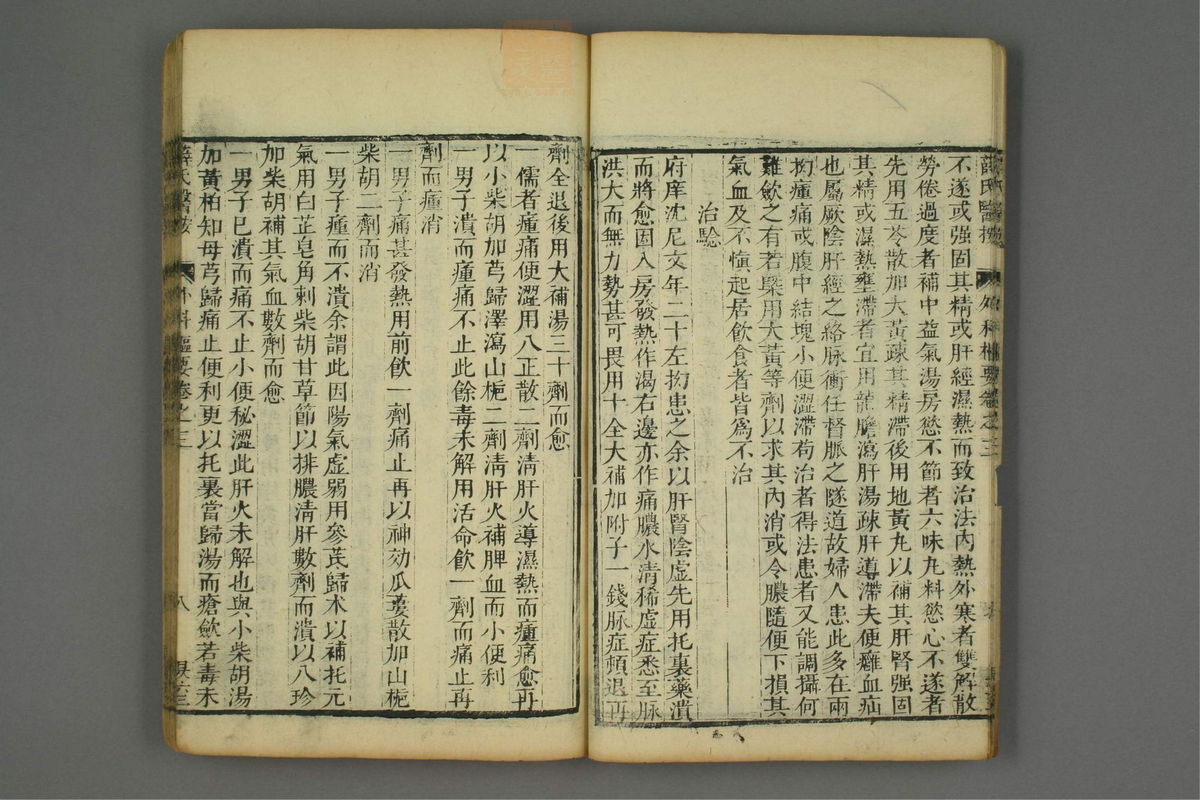 不遂或强固其精或肝經濕熱而致治法内熱外寒者雙解散
勞倦過度者補中益氣湯房慾不節者六味丸料慾心不遂者
先用五苓散加大黃疎其精滯後用地黃丸以補其肝腎强固
其精或濕熱壅滯者宜用龍膽瀉肝湯疎肝導滯夫便癰血疝
也屬厥陰肝經之絡脉衝任督脉之隧道故婦人患此多在兩
拗瘇痛或腹中結塊小便澀滯苟治者得法患者又能調攝何
難歛之有若槩用大黃等劑以求其内消或令膿隨便下損其
氣血及不愼起居飲食者皆爲不治
治驗
府庠沈尼文年二十左拗患之余以肝腎陰虛先用托裏藥潰
而將愈因入房發熱作渴右邊亦作痛膿水清稀虛症悉至脉
洪大而無力勢甚可畏用十全大補加附子一錢脉症頓退再
劑全退後用大補湯三十劑而愈
一儒者瘇痛便澀用八正散二劑淸肝火導濕熱而瘇痛愈再
以小柴胡加芎歸澤瀉山梔二劑淸肝火補脾血而小便利
一男子潰而瘇痛不止此餘毒未解用活命飲一劑而痛止再
劑而瘇消
一男子痛甚發熱用前飲一劑痛止再以神効瓜蔞散加山梔
柴胡二劑而消
一男子瘇而不潰余謂此因陽氣虛弱用參芪歸术以補托元
氣用白芷皂角刺柴胡甘草節以排膿淸肝數劑而潰以八珍
加柴胡補其氣血數劑而愈
一男子已潰而痛不止小便秘澀此肝火未解也與小柴胡湯
加黃柏知母芎歸痛止便利更以托裏當歸湯而瘡歛若毒未
薛氏醫按 外科樞要卷之三 八